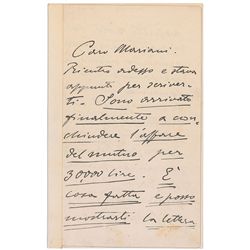 Caro Mariani.
Rientro adesso e stavo
appunto per scriver-
ti. Sono arrivato
finalmente a con-
chiudere l'affare
del mutuo per
30,000 lire. È
cosa fatta e posso
mostrarti la lettera